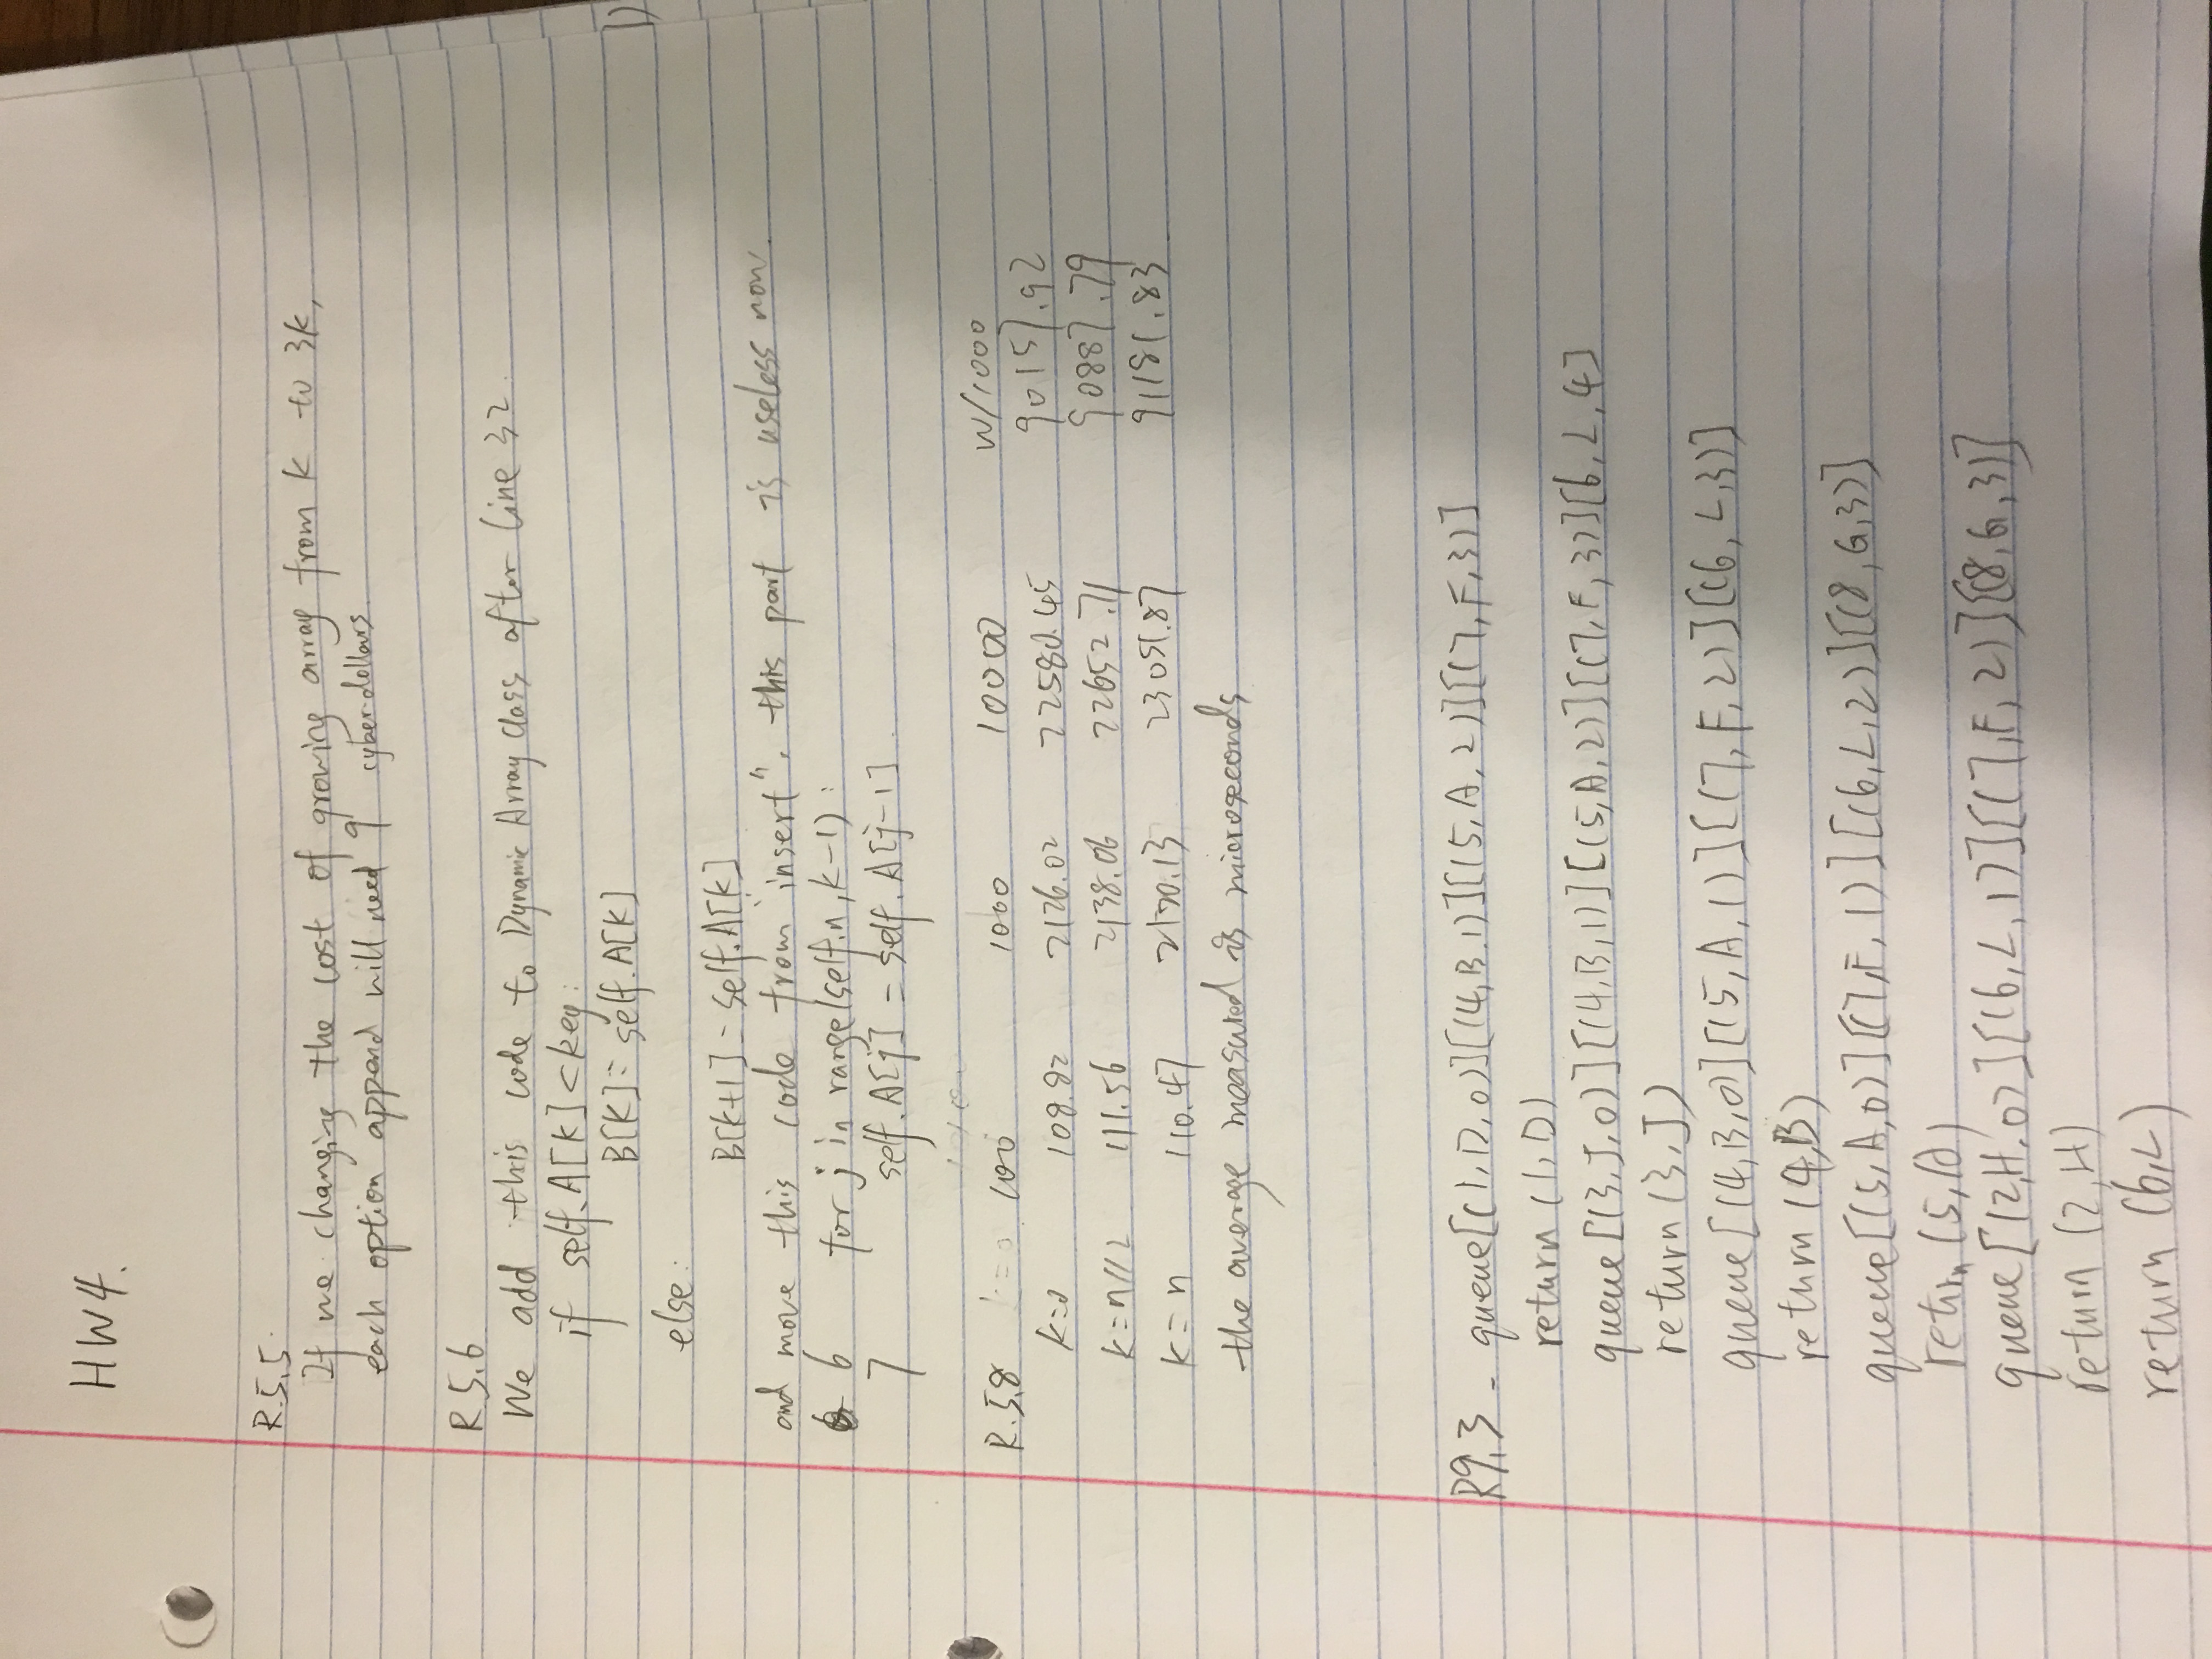 HW4.
R.5.5.
If we changing the cost of growing array from k to 3k,
each option appand will need 9 cyber-dollars.
R 5.6
We add this code to Dynamic Array Class after line 32.
if self.A[k]<key:
B[k]=self.A[k]
else:
B[k+1]=self.A[k]
and move this code from "insert", this part is useless now.
6 for j in range(self.n,k-1):
7 self.A[j]=self.A[j-1].
R.5.8 100 1000 10000 W/1000
k=0 108.82 2126.02 22580.45 90157.92
k=n//2 111.56 2138.06 22652.71 90887.79
k=n 110.47 23051.87 91181.83
the average measured is microseconds
R9.3 - queue[(1,D,0)][(4,B.1)][(5,A,2)][(7,F,3)]
return (1,D)
queue[(3,J,0)][(4,B,1)][(5,A,2)][(7,F,3)][6,L,4]
return (3,J)
queue[(4,B,0)][(5,A,1)][(7,F,2)][(6,L,3)]
return (4,B)
queue[(5,A,0)][(7,F,1)][(6,L,2)][(8,G,3)]
return (5,A)
queue[(2,H,0)][(6,L,1)][(7,F,2)][(8,G,3)]
return (2,H)
return (6,L)